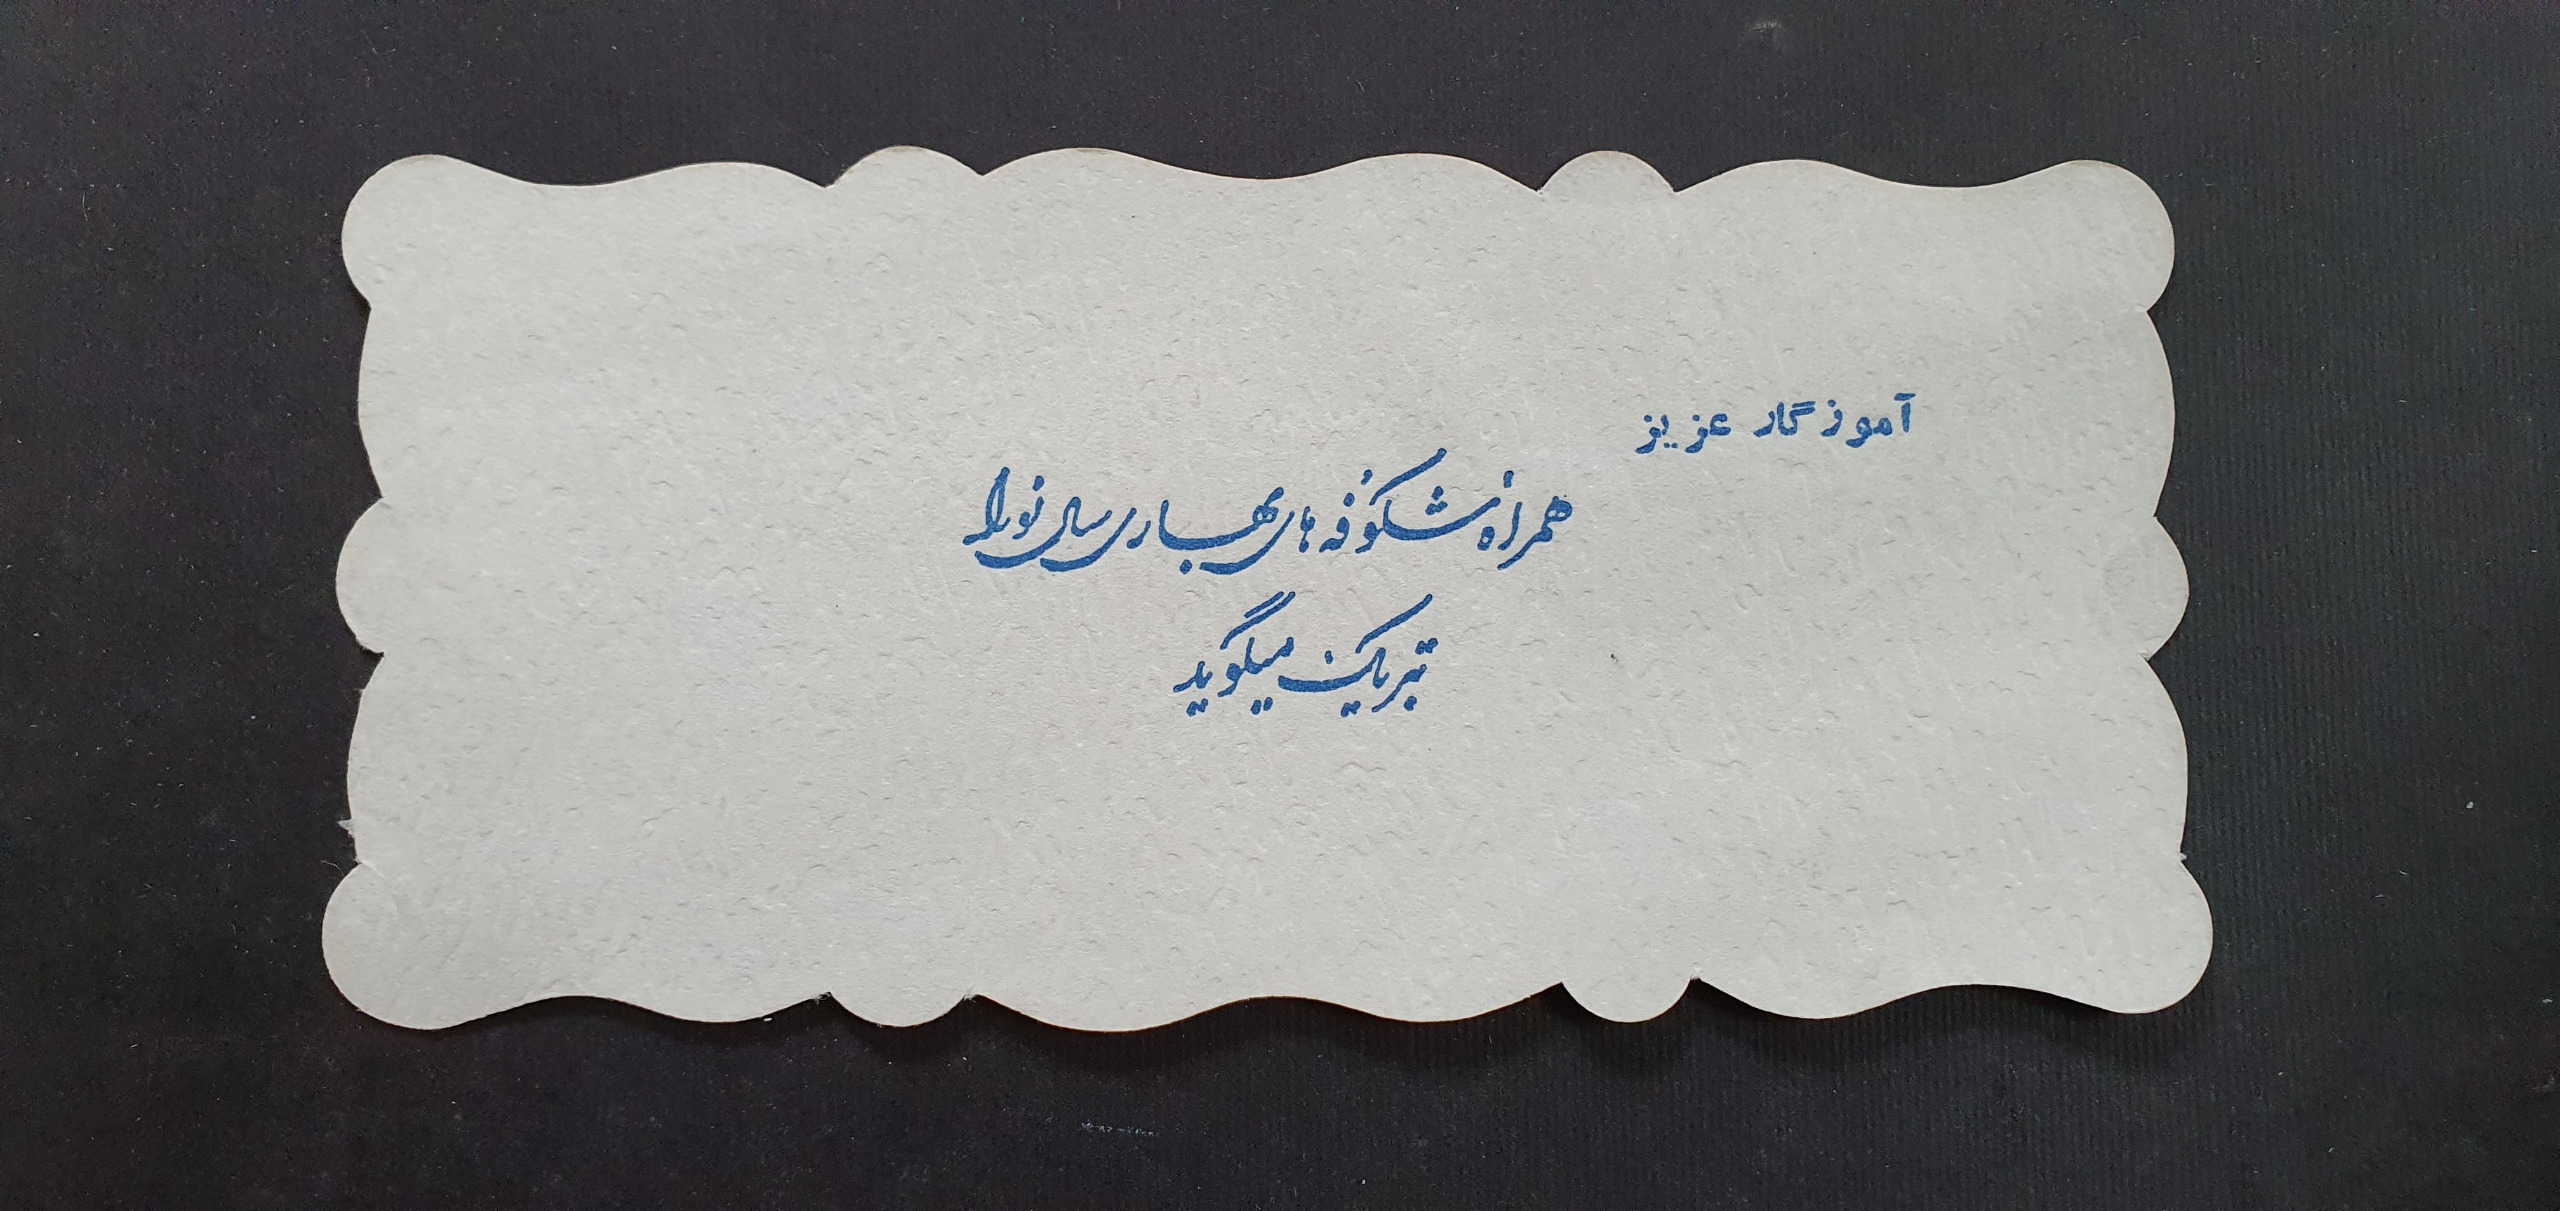 آموزگار عزیز
همراه شکوفه های بهاری سال نو را
تبریک میگوید